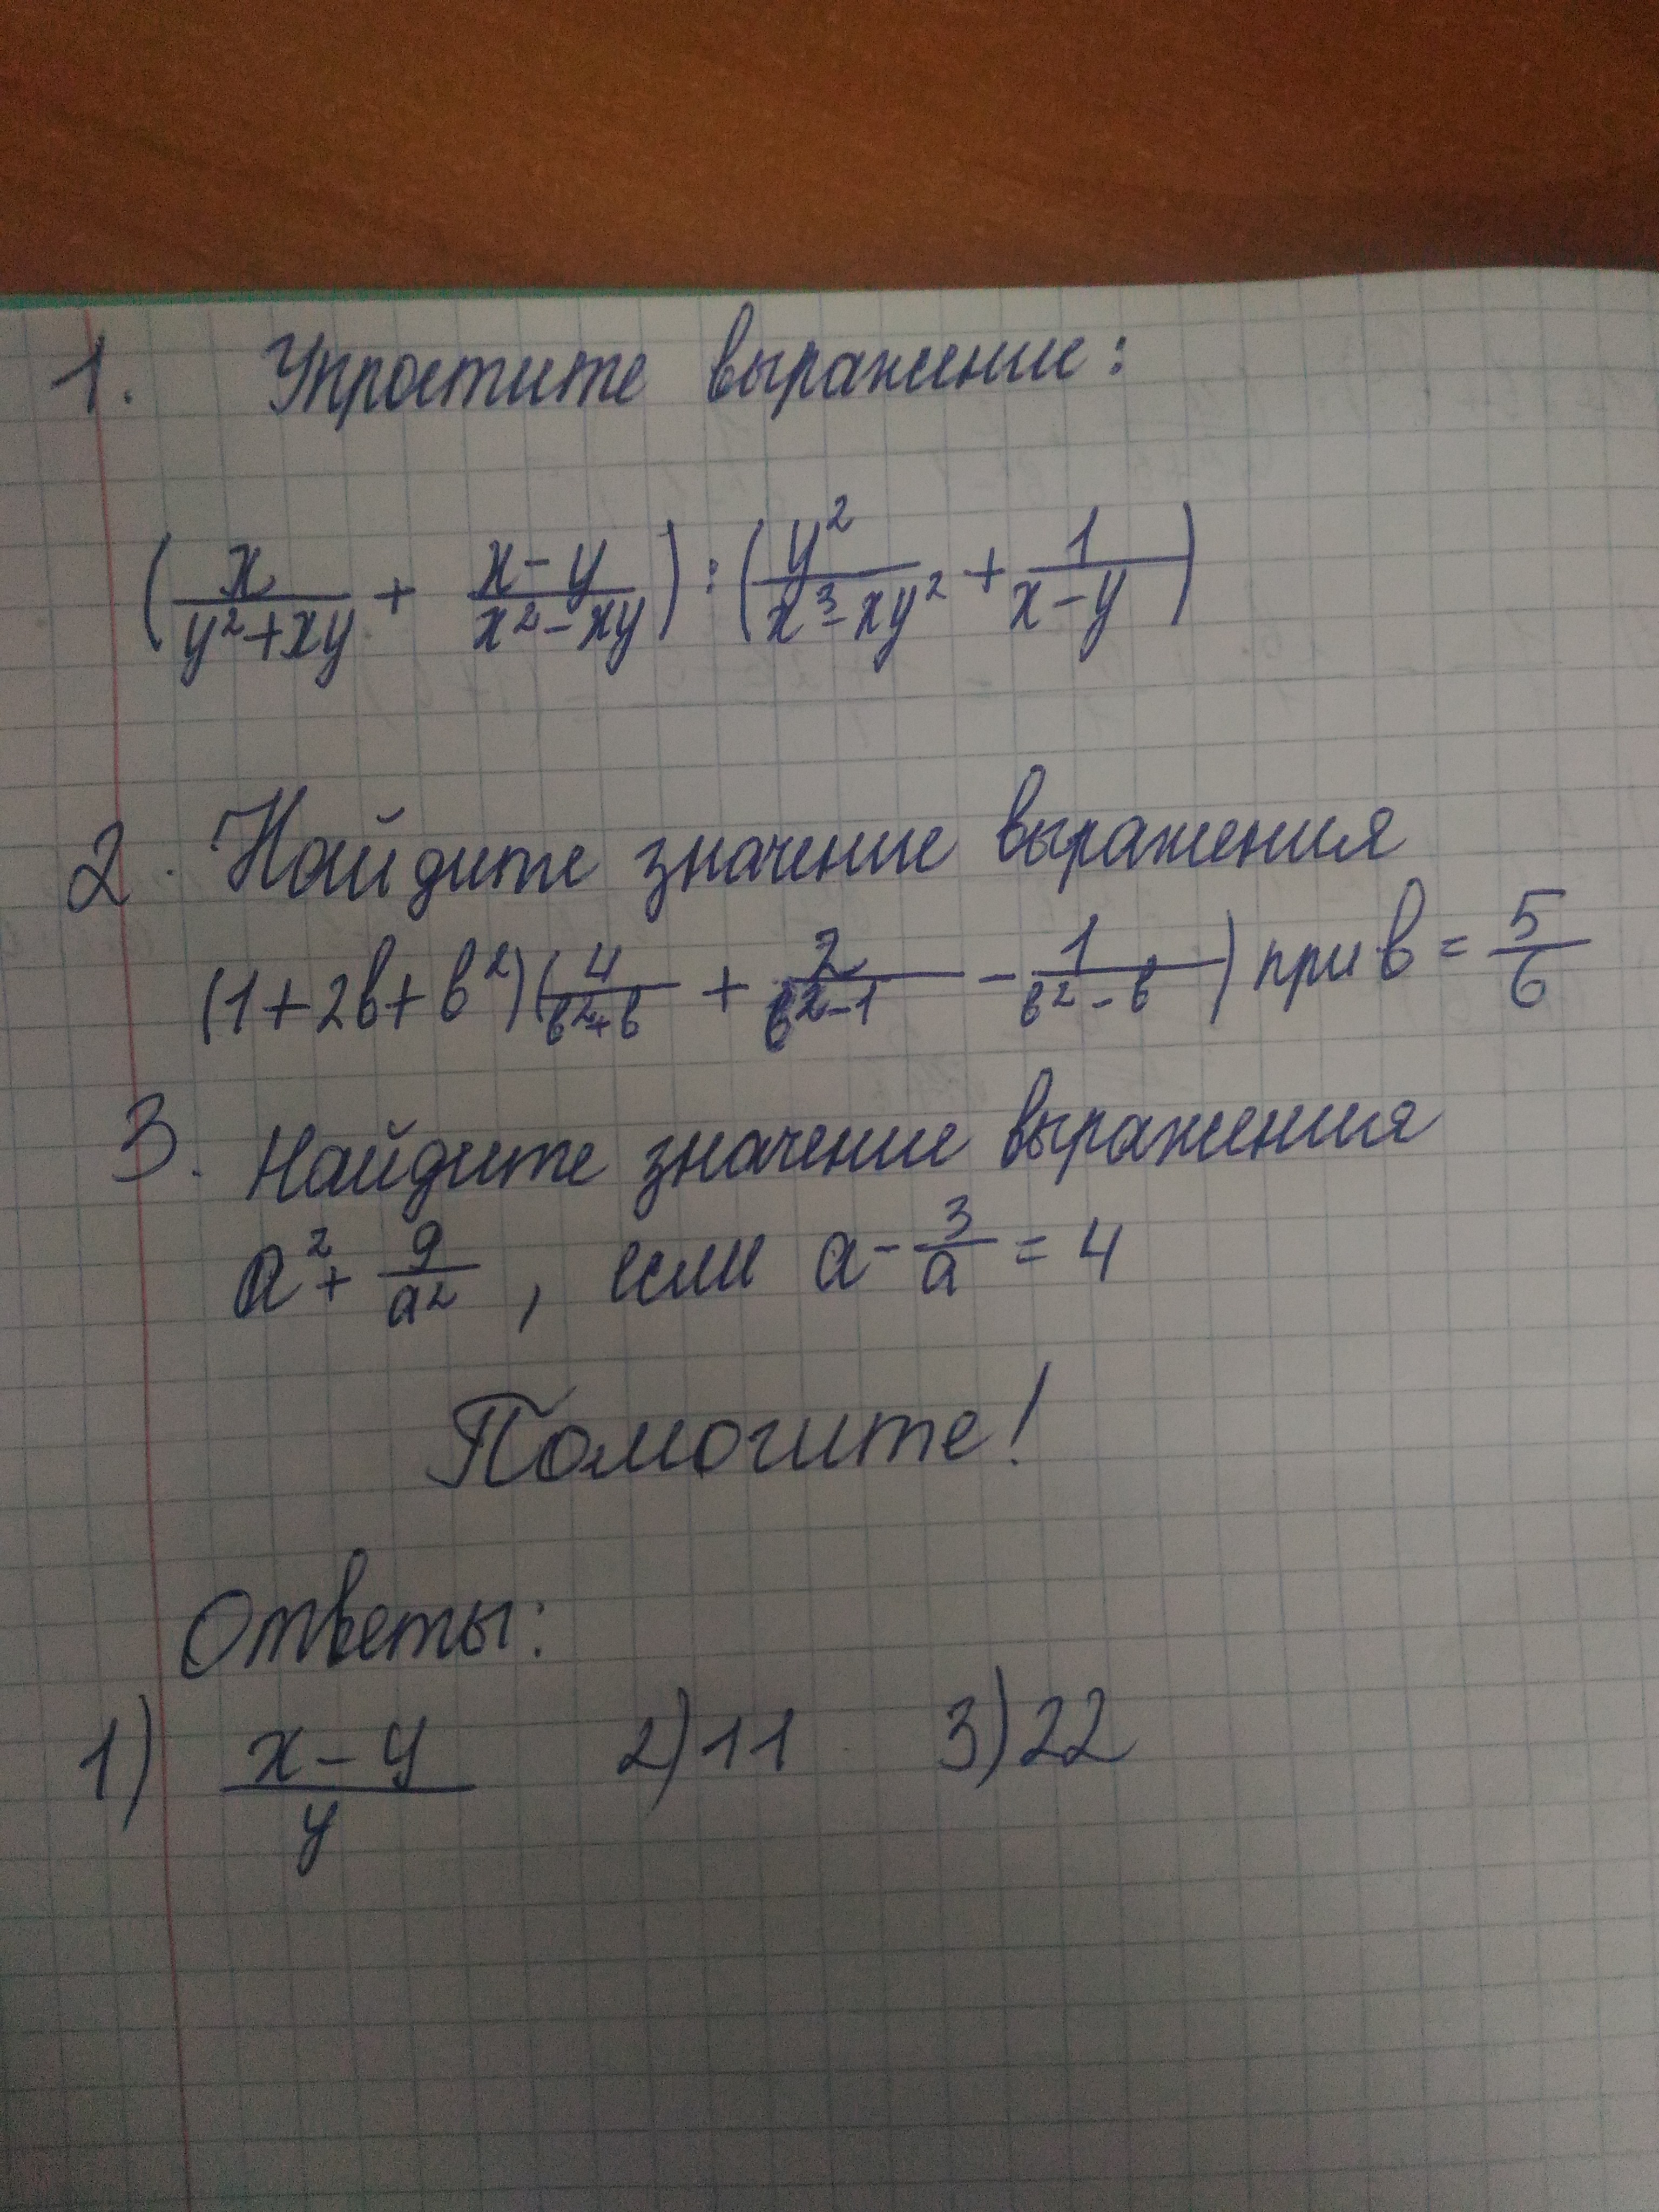 1. Упростите выражение:
(x/(y²+xy) + (x-y)/(x²-xy)) : (y²/(x³-xy²) + 1/(x-y))
2. Найдите значение выражения
(1+2b+b²)(4/(b²+b) + 2/(b²-1) - 1/(b²-b)) при b = 5/6
3. Найдите значение выражения
a² + 9/a², если a - 3/a = 4
Помогите!
Ответы:
1) (x-y)/y 2) 11 3) 22